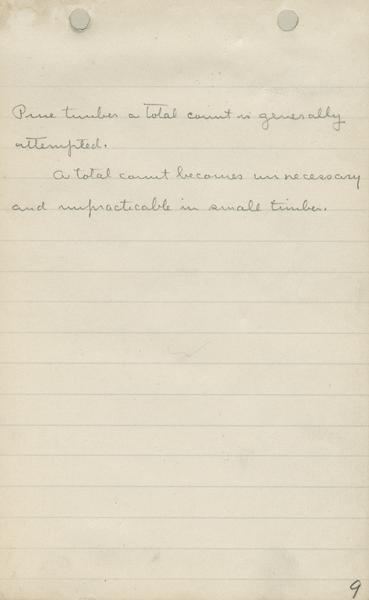 Pine timber a total count is generally
attempted.
A total count becomes unnecessary
and impracticable in small timber.
9